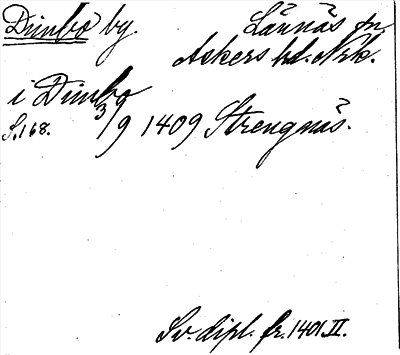 Dimbo by. Lännäs sn.
Åkers hd. Nrk.
i Dimbo
S. 168. 3/9 1409 Strengnäs.
Sv. dipl. fr. 1401. II.